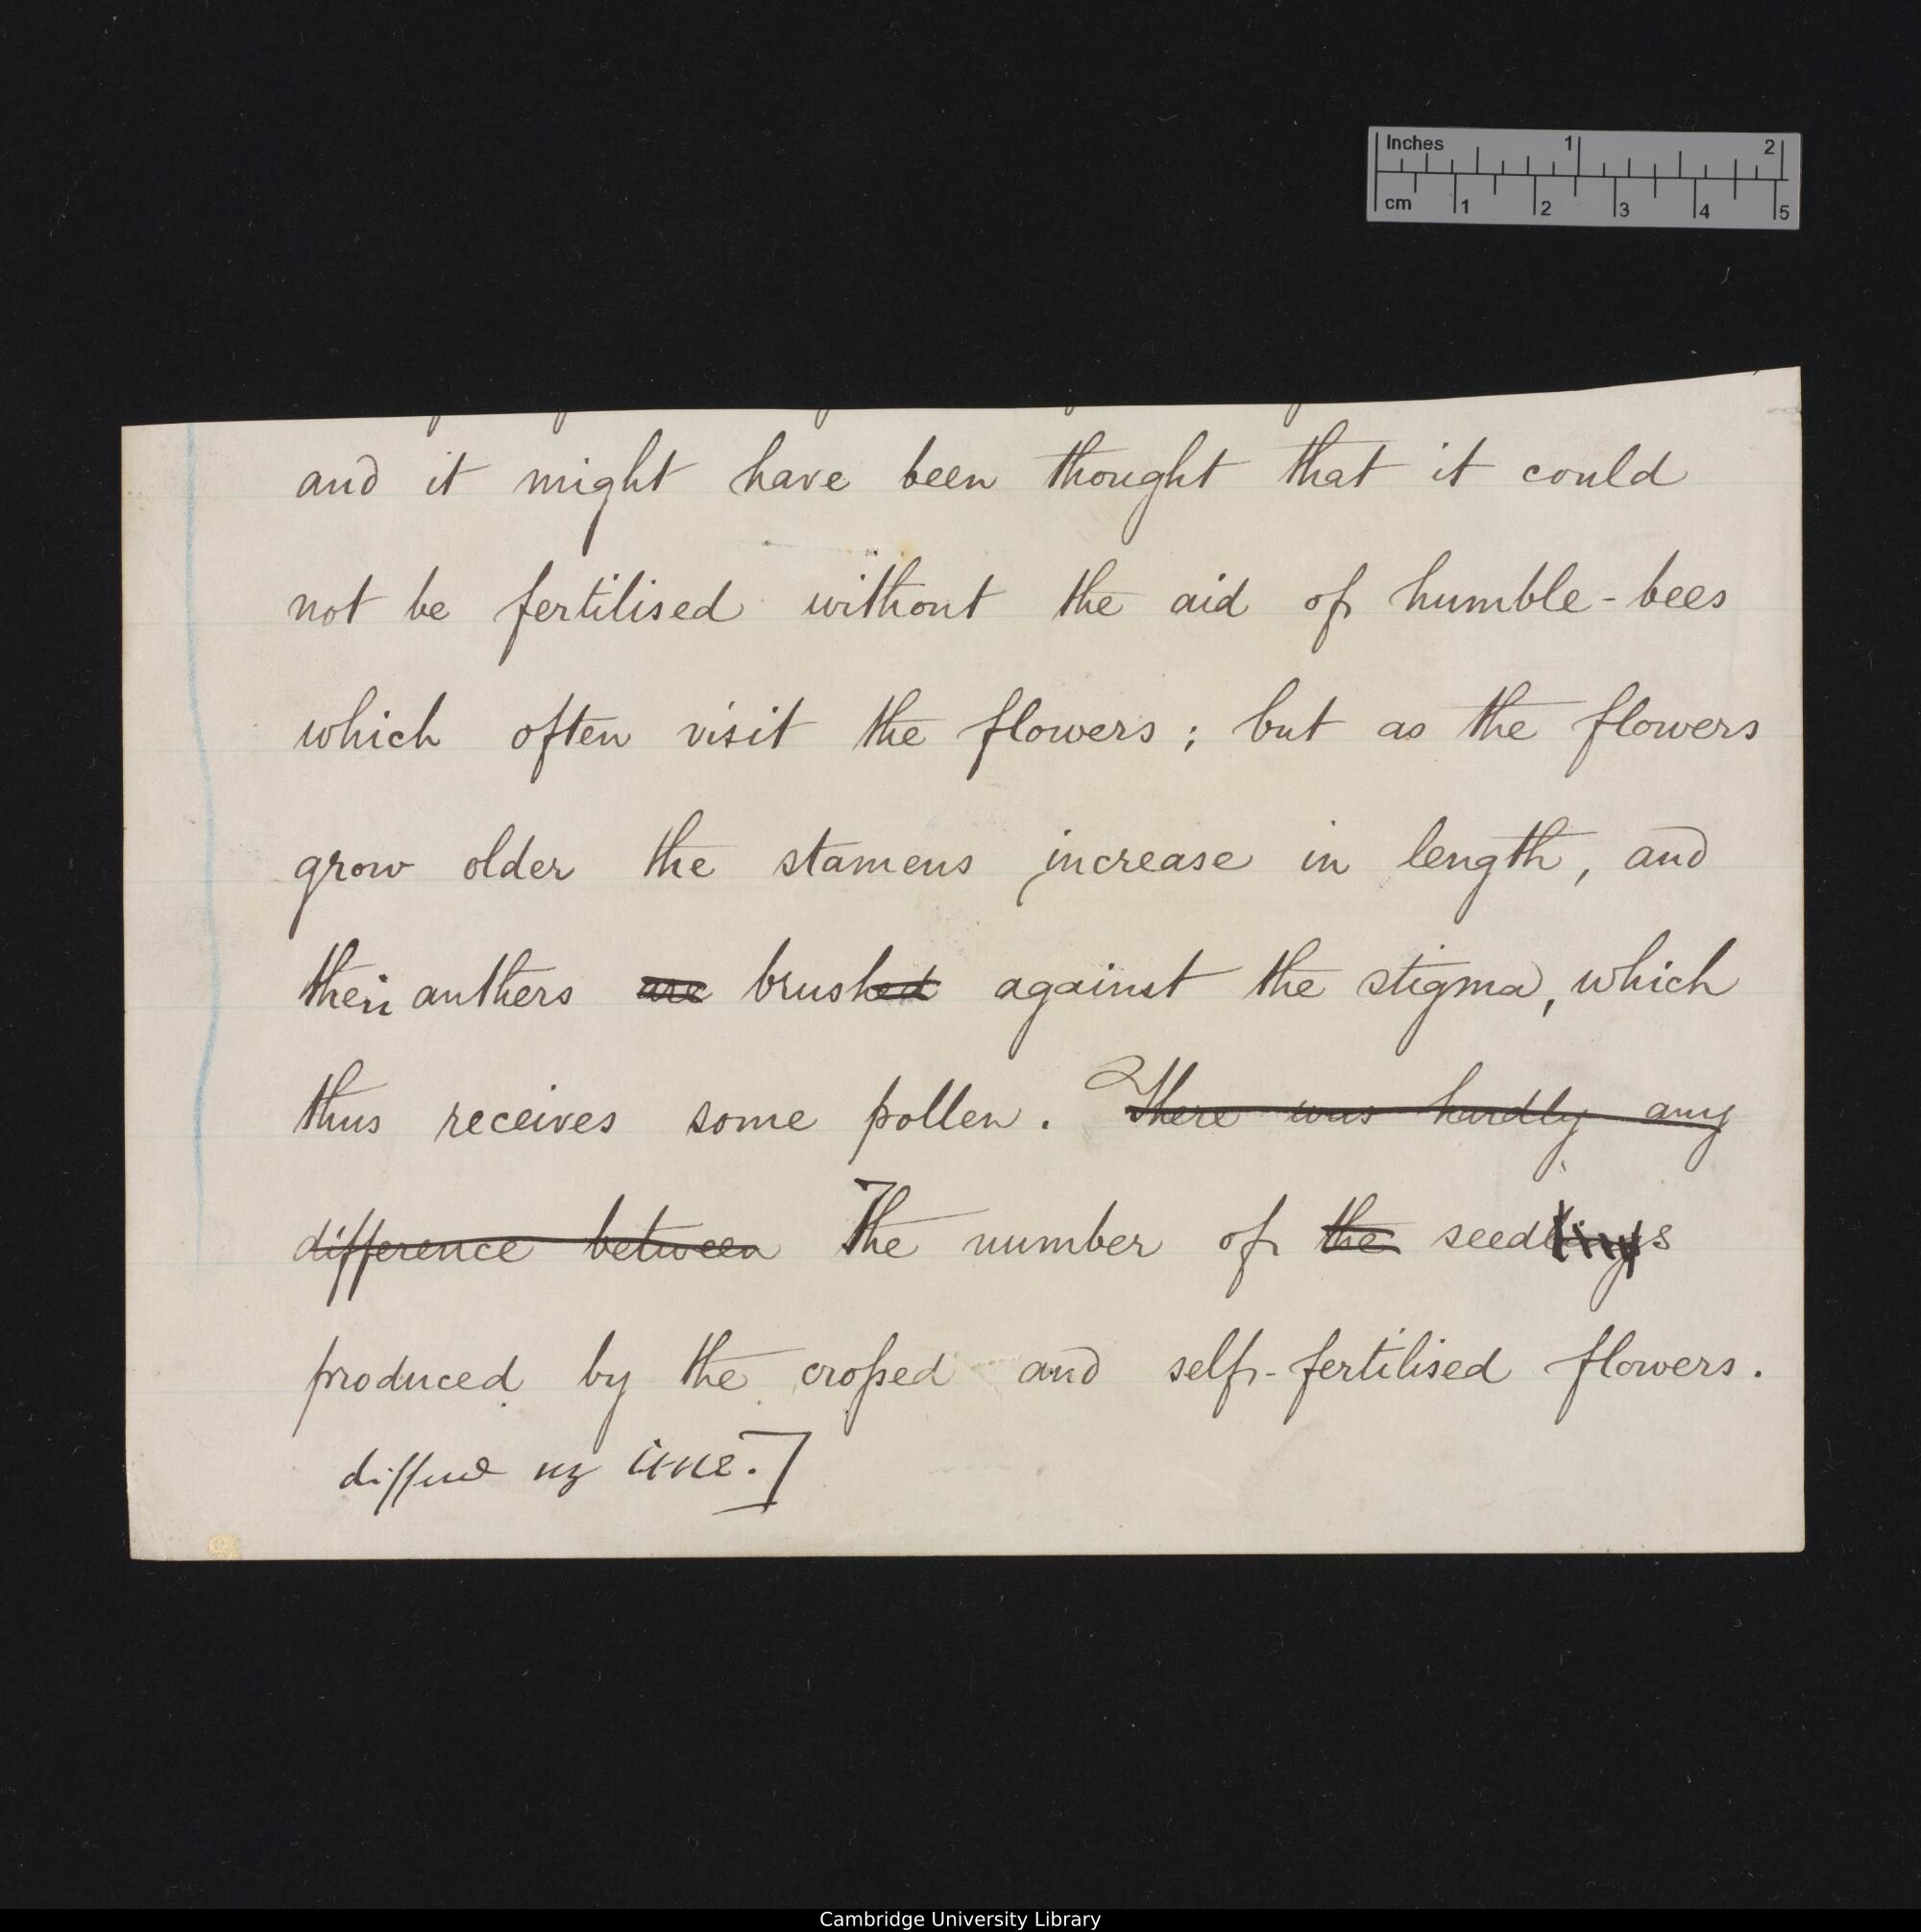 Inches 1 2
cm 1 2 3 4 5
and it might have been thought that it could
not be fertilised without the aid of humble-bees
which often visit the flowers ; but as the flowers
grow older the stamens increase in length, and
their anthers are brushed against the stigma, which
thus receives some pollen. There was hardly any
difference between The number of the seedlings
produced by the crossed and self-fertilised flowers.
differed
Cambridge University Library